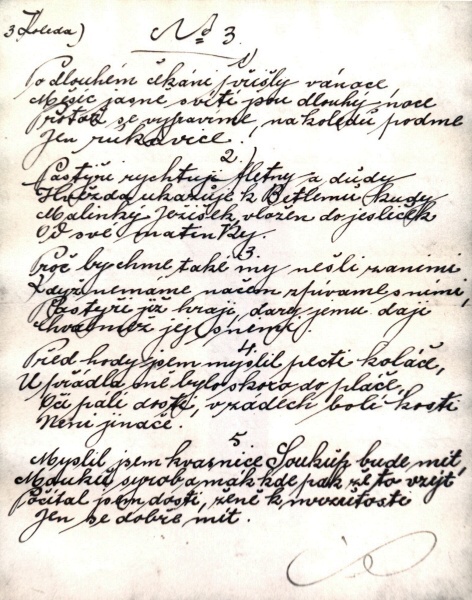 3 Koleda)
No 3.
1)
Po dlouhém čkání přišly vánoce,
Měsíc jasně svítí jsou dlouhý noce
se vypravíme, na koledu podme
Jen rukavice!
2.)
Pastýři rychtuji fletny a dudy
Hvězda ukazuje k Betlemu kudy
Malinky Jezisek vložen do jesliček
Od své matinky.
3.
Proč bychme také my nešli zanimi
Když nemame načem zpívame s nimi,
Pastýři již hraji, dary jemu daji
jej s nemi.
4.
Před hody jsem myslil pecti koláč,
U prádla mě bylo skoro do pláče,
Oči pálí dosti, v zádech bolí kosti
Neni jináče.
5.
Myslil jsem kvasnice Soukup bude mit,
Mouku syrob a mák kde pak ze to vzejt
Počítal jsem dosti, ženě k mrzutosti
Jen se dobře mit.